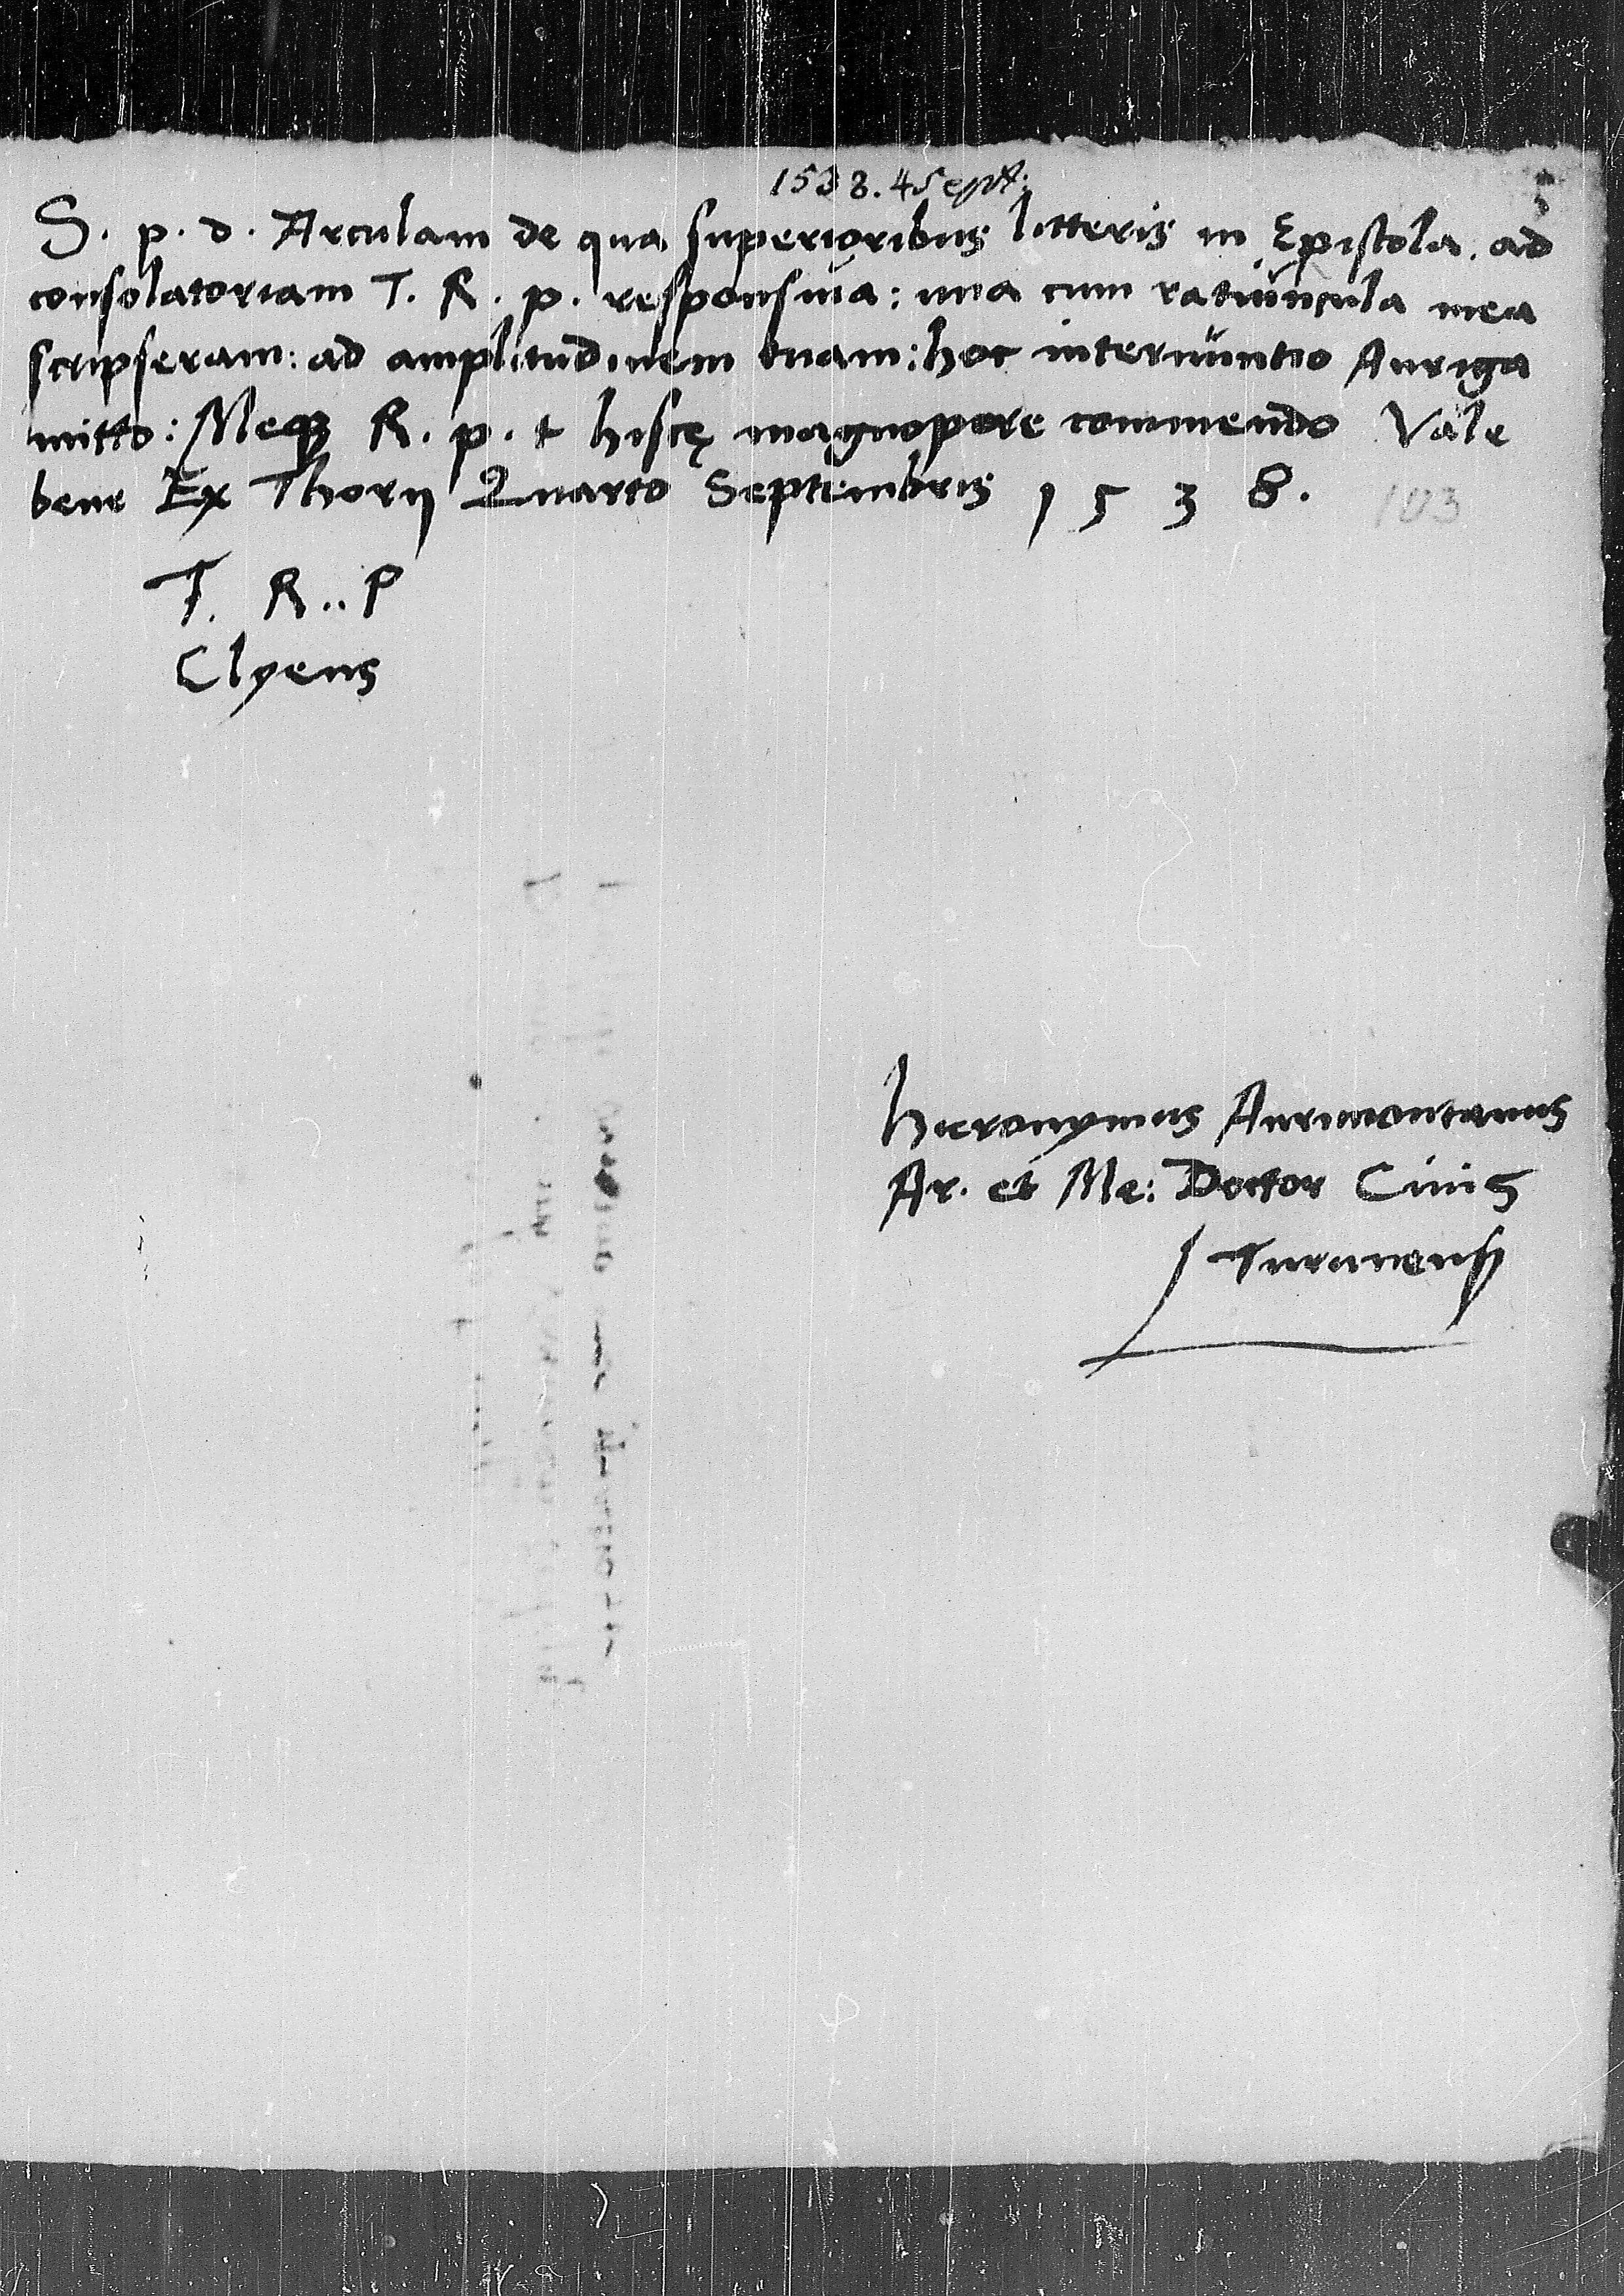 1538. 4 Sept:
S. p. d. Arculam de qua superioribus litteris in Epistola ad
consolatoriam T. R. p. responsiva: una cum ratiuncula mea
scripseram: ad amplitudinem tuam: hoc internuntio Auriga
mitto: Meque R. p. t hiscę magnopere commendo Vale
bene Ex Thorn Quarto Septembris 1538.
103
T. R.. P
Clyens
Hieronymus Aurimontanus
Ar. et Me: Doctor Civis
Turunensis